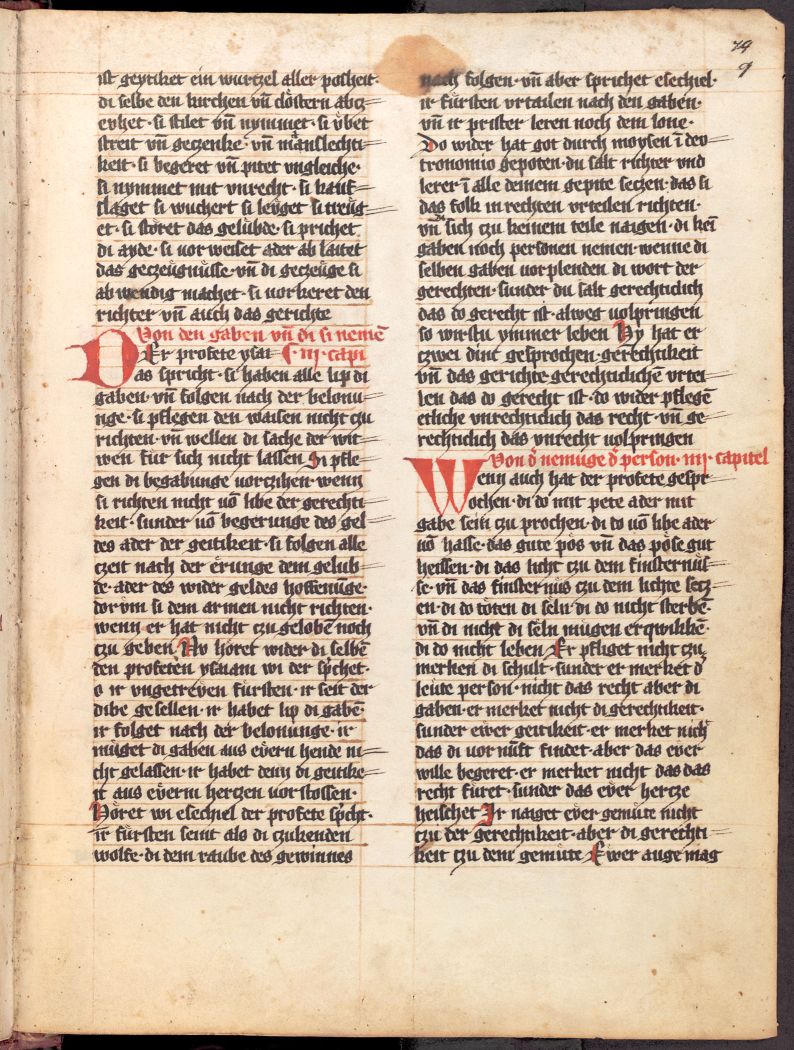 ist geytiket ein wurtzel aller posheit·
di selbe den kirchen vn̄ clöstern abcz=
evhet· si stilet vn̄ nymmet· si v̈bet
streit vn̄ geczenke· vn̄ manslechti=
keit· si begeret vn̄ pitet vngleiche·
si nymmet mit vnrecht· si kauf=
slaget si wuchert si leuget si treug=
et· si störet das gelübde· si prichet
di ayde· si uor weiset ader ab laitet
das geczeügnüsse· vn̄ di geczeüge si
ab wendig machet· si uorkeret den
richter vn̄ auch das gerichte
Von den gaben vn̄ di si nemē
DEr profete ysai ·iij· capi
as spricht· si haben alle lip di
gaben· vn̄ folgen nach der belonu=
nge· si pflegen den waisen nicht czu
richten· vn̄ wellen di sache der wit=
wen für sich nicht lassen Si pfle=
gen di begabunge uorczihen· wenn
si richten nicht uō libe der gerechti=
keit· sunder uō begerunge des gel=
des ader der geitikeit· si folgen alle
czeit nach der erunge dem gelub=
de· ader des wider geldes hoffenūge·
dorvm si dem armen nicht richten·
wenn er hat nicht czu gelobē noch
czu geben Nv höret wider di selbē
den profeten ysaiam wi der sp̄chet·
o ir vngetreven fürsten· ir seit der
dibe gesellen· ir habet lip di gabē·
ir folget nach der belonunge· ir
müget di gaben aus evern hende ni=
cht gelassen· ir habet denn di geitike=
it aus everm hertzen uorstossen·
Horet wi esechiel der profete sp̄cht·
ir fürsten seint als di czukenden
wolfe· di dem raube des gewinnes
nach folgen· vn̄ aber sprichet esechiel·
ir fürsten vrtailen nach den gaben·
vn̄ ir prister leren noch dem lone·
Do wider hat got durch moysen ī dev
tronomio gepoten· du salt richter vnd
lerer ī alle deinem gepite seczen· das si
das folk in rechten vrteilen richten·
vn̄ sich czu keinem teile naigen· di kei
gaben noch personen nemen· wenne di
selben gaben uorplenden di wort der
gerechten· sunder du salt gerechticlich
das do gerecht ist· alweg uolpringen
so wirstu ymmer leben Ny hat er
czwei dinc gesprochen· gerechtikeit
vn̄ das gerichte· gerechticlichē vrtei=
len das do gerecht ist· do wider pflegē
etliche vnrechticlich das recht· vn̄ ge=
rechticlich das vnrecht uolpringen
Von d̄ nemūge d̄ person· iiij· capitel
Wenn auch hat der profete gespr=
ochen· di do mit pete ader mit
gabe sein czu prochen· di do uō libe ader
uō hasse· das gute pös vn̄ das pöse gut
heissen· di das licht czu dem finsternüs=
se· vn̄ das finsternüs czu dem lichte secz=
en· di do töten di seln· di do nicht sterbē·
vn̄ di nicht di seln mügen erqwikkē·
di do nicht leben Er pfliget nicht czu
merken di schult· sunder er merket d̄
leüte person· nicht das recht aber di
gaben· er merket nicht di gerechtikeit·
sunder ewer geitikeit· er merket nich
das di uor nuft findet· aber das ever
wille begeret· er merket nicht das das
recht füret· sunder das ever hercze
heischet Ir naiget ever gemüte nicht
czu der gerechtikeit· aber di gerechti=
keit czu dem gemüte Ewer auge mag